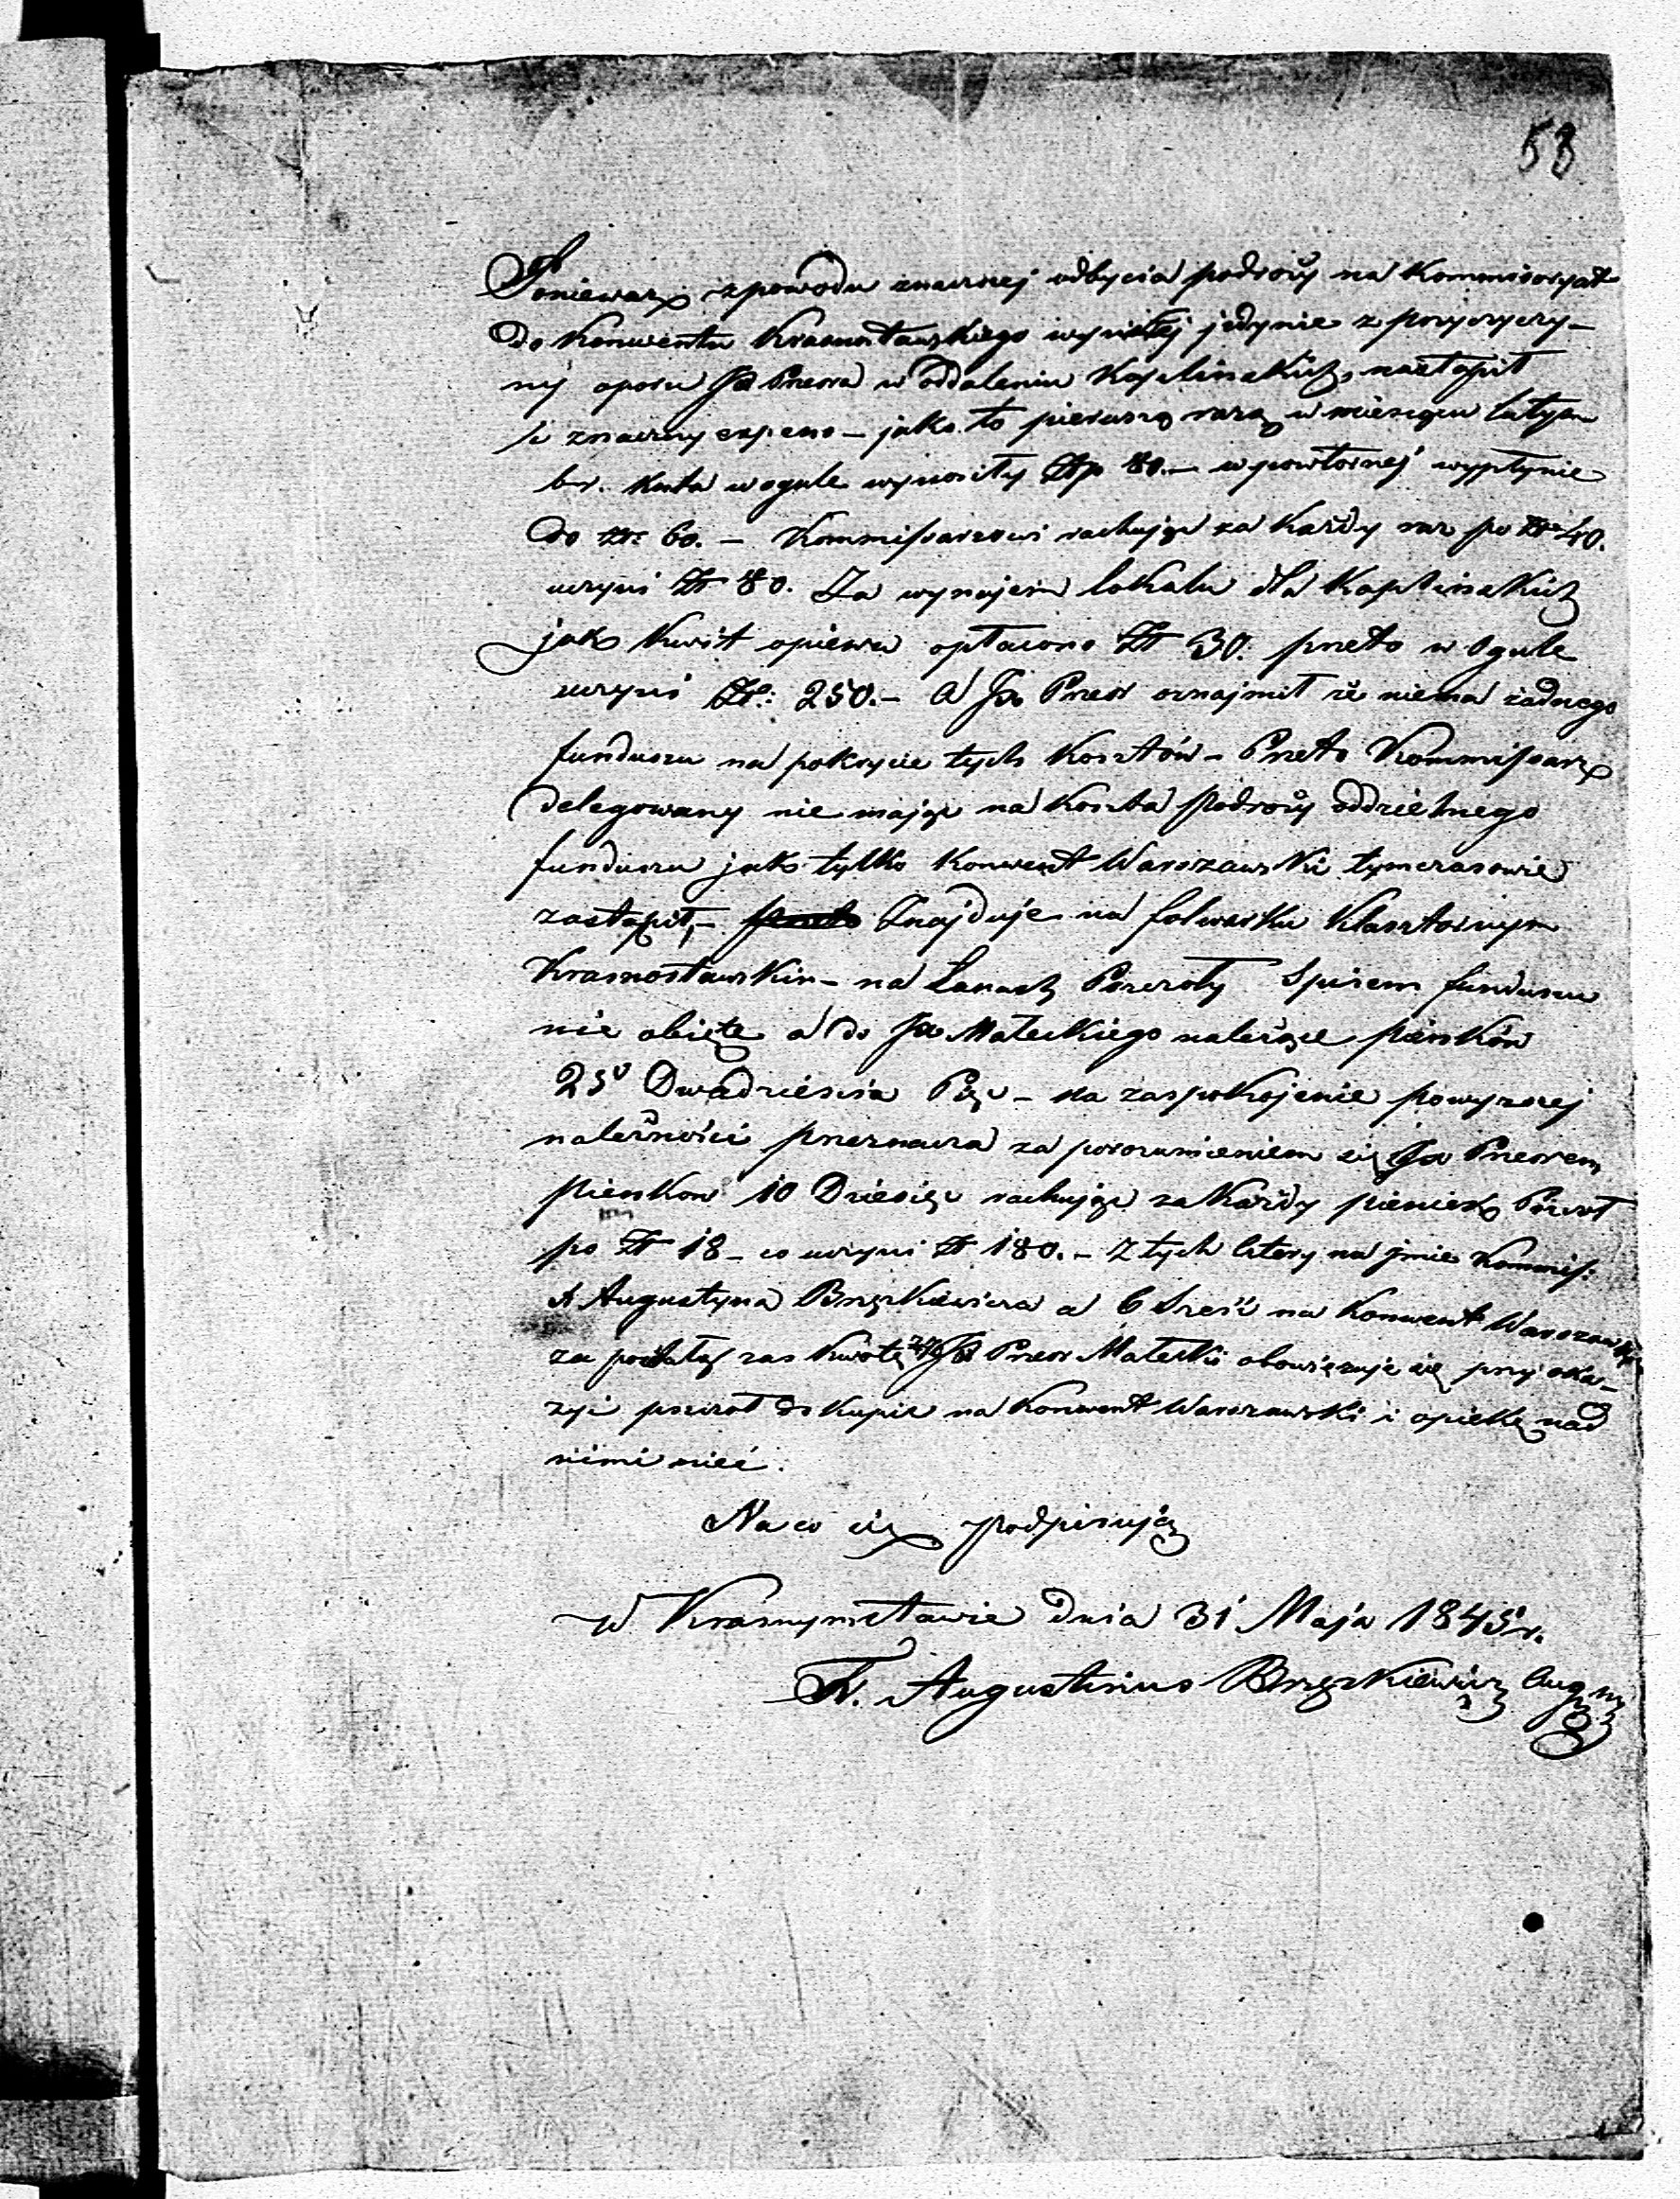 53
Ponieważ z powodu znacznej odbycia podroży na Kommissoryat
do Konwentu Krasnostawskiego wynikłej jedynie z przyczyny
nej oporu Jx Przeora w oddaleniu Kapelińskich, nastąpił
i znaczny expens – jako to pierwszą razą w miesiącu lutym
b. r. Kosta w ogule wynosiły Złp 80. – w powtornej wypłynie
do złr: 60. – Kommissarzowi rachując za Każdy raz po Zł 40.
uczyni Zł 80. Za wynajem lokalu dla Kaplińskich
jak Kwit opiewa opłacono Zł 30. przeto w Ogule
uczyni Zł: 250. – A Jx Przeor oznajmił że niema żadnego
funduszu na pokrycie tych Kosztów – Przeto Kommissarz
delegowany nie mając na Koszta Podroży oddzielnego
funduszu jak tylko Konwent Warszawski tymczasowie
zastąpił, – Znajduje na folwarku Klasztornym
Krasnostawskim – na Łanach Pszczoły Spisem funduszu
nie objęte a do Jx Małeckiego należące pieńków
25 Dwadzieścia Pięć – na zaspokojenie powyższej
należności przeznacza za porozumieniem się Jx Przeorem
Pieńkow 10 Dziesięć rachując za Każdy pieniek Pszczoł
po Zł 18 – co uczyni Zł 180. – Z tych cztery na jmie Kommis:
X Augustyna Brzęzkiewicza a 6 Sześć na Konwent Warszawski
za pozostałą zas Kwotę Jx Przeor Małecki obowięzuje się przy oka-
zyi pszczoł do Kupić na Konwent Warszawski i opiekę nad
niemi mieć.
Na co się podpisują
W Krasnymstawie dnia 31 Maja 1845 r.
Fr. Augustinus Brzęzkiewicz Aug